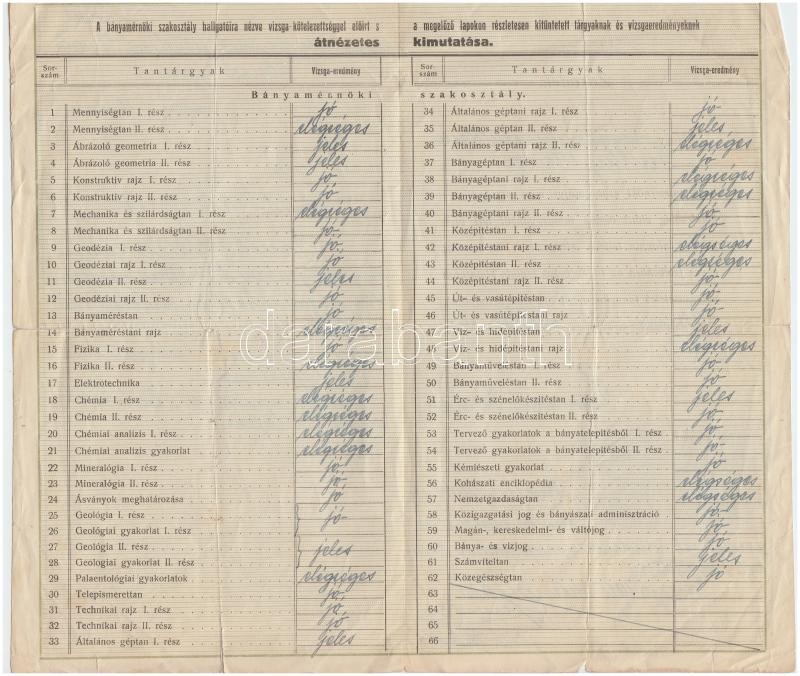 A bányamérnöki szakosztály hallgatóira nézve vizsga-kötelezettséggel előírt s a megelőző lapokon részletesen kitüntetett tárgyaknak és vizsgaeredményeknek
átnézetes kimutatása.
Sor-szám Tantárgyak Vizsga-eredmény Sor-szám Tantárgyak Vizsga-eredmény
Bányamérnöki szakosztály.
1 Mennyiségtan I. rész jó
2 Mennyiségtan II. rész elégséges
3 Ábrázoló geometria I. rész jeles
4 Ábrázoló geometria II. rész jeles
5 Konstruktiv rajz I. rész jó
6 Konstruktiv rajz II. rész jó
7 Mechanika és szilárdságtan I. rész elégséges
8 Mechanika és szilárdságtan II. rész jó
9 Geodézia I. rész jó
10 Geodéziai rajz I. rész jó
11 Geodézia II. rész jeles
12 Geodéziai rajz II. rész jó
13 Bányaméréstan jó
14 Bányaméréstani rajz elégséges
15 Fizika I. rész jó
16 Fizika II. rész elégséges
17 Elektrotechnika jeles
18 Chémia I. rész elégséges
19 Chémia II. rész elégséges
20 Chémiai analízis I. rész elégséges
21 Chémiai analízis gyakorlat elégséges
22 Mineralógia I. rész jó
23 Mineralógia II. rész jó
24 Ásványok meghatározása jó
25 Geológia I. rész jó
26 Geológiai gyakorlat I. rész
27 Geológia II. rész jeles
28 Geologiai gyakorlat II. rész
29 Palaentológiai gyakorlatok elégséges
30 Telepismerettan jó
31 Technikai rajz I. rész jó
32 Technikai rajz II. rész jó
33 Általános géptan I. rész jeles
34 Általános géptani rajz I. rész jó
35 Általános géptan II. rész jeles
36 Általános géptani rajz II. rész elégséges
37 Bányagéptan I. rész jó
38 Bányagéptani rajz I. rész elégséges
39 Bányagéptan II. rész elégséges
40 Bányagéptani rajz II. rész jó
41 Középítéstan I. rész jó
42 Középítéstani rajz I. rész elégséges
43 Középítéstan II. rész elégséges
44 Középítéstani rajz II. rész jó
45 Út- és vasútépítéstan jó
46 Út- és vasútépítéstani rajz jó
47 Víz- és hídépítéstan jeles
48 Víz- és hídépítéstani rajz elégséges
49 Bányaműveléstan I. rész jó
50 Bányaműveléstan II. rész jó
51 Érc- és szénelőkészítéstan I. rész jeles
52 Érc- és szénelőkészítéstan II. rész jó
53 Tervező gyakorlatok a bányatelepítésből I. rész jó
54 Tervező gyakorlatok a bányatelepítésből II. rész jó
55 Kémlészeti gyakorlat jó
56 Kohászati enciklopédia elégséges
57 Nemzetgazdaságtan elégséges
58 Közigazgatási jog és bányászati adminisztráció jó
59 Magán-, kereskedelmi- és váltójog jó
60 Bánya- és vízjog jó
61 Számviteltan jeles
62 Közegészségtan jó
63
64
65
66
darabanth